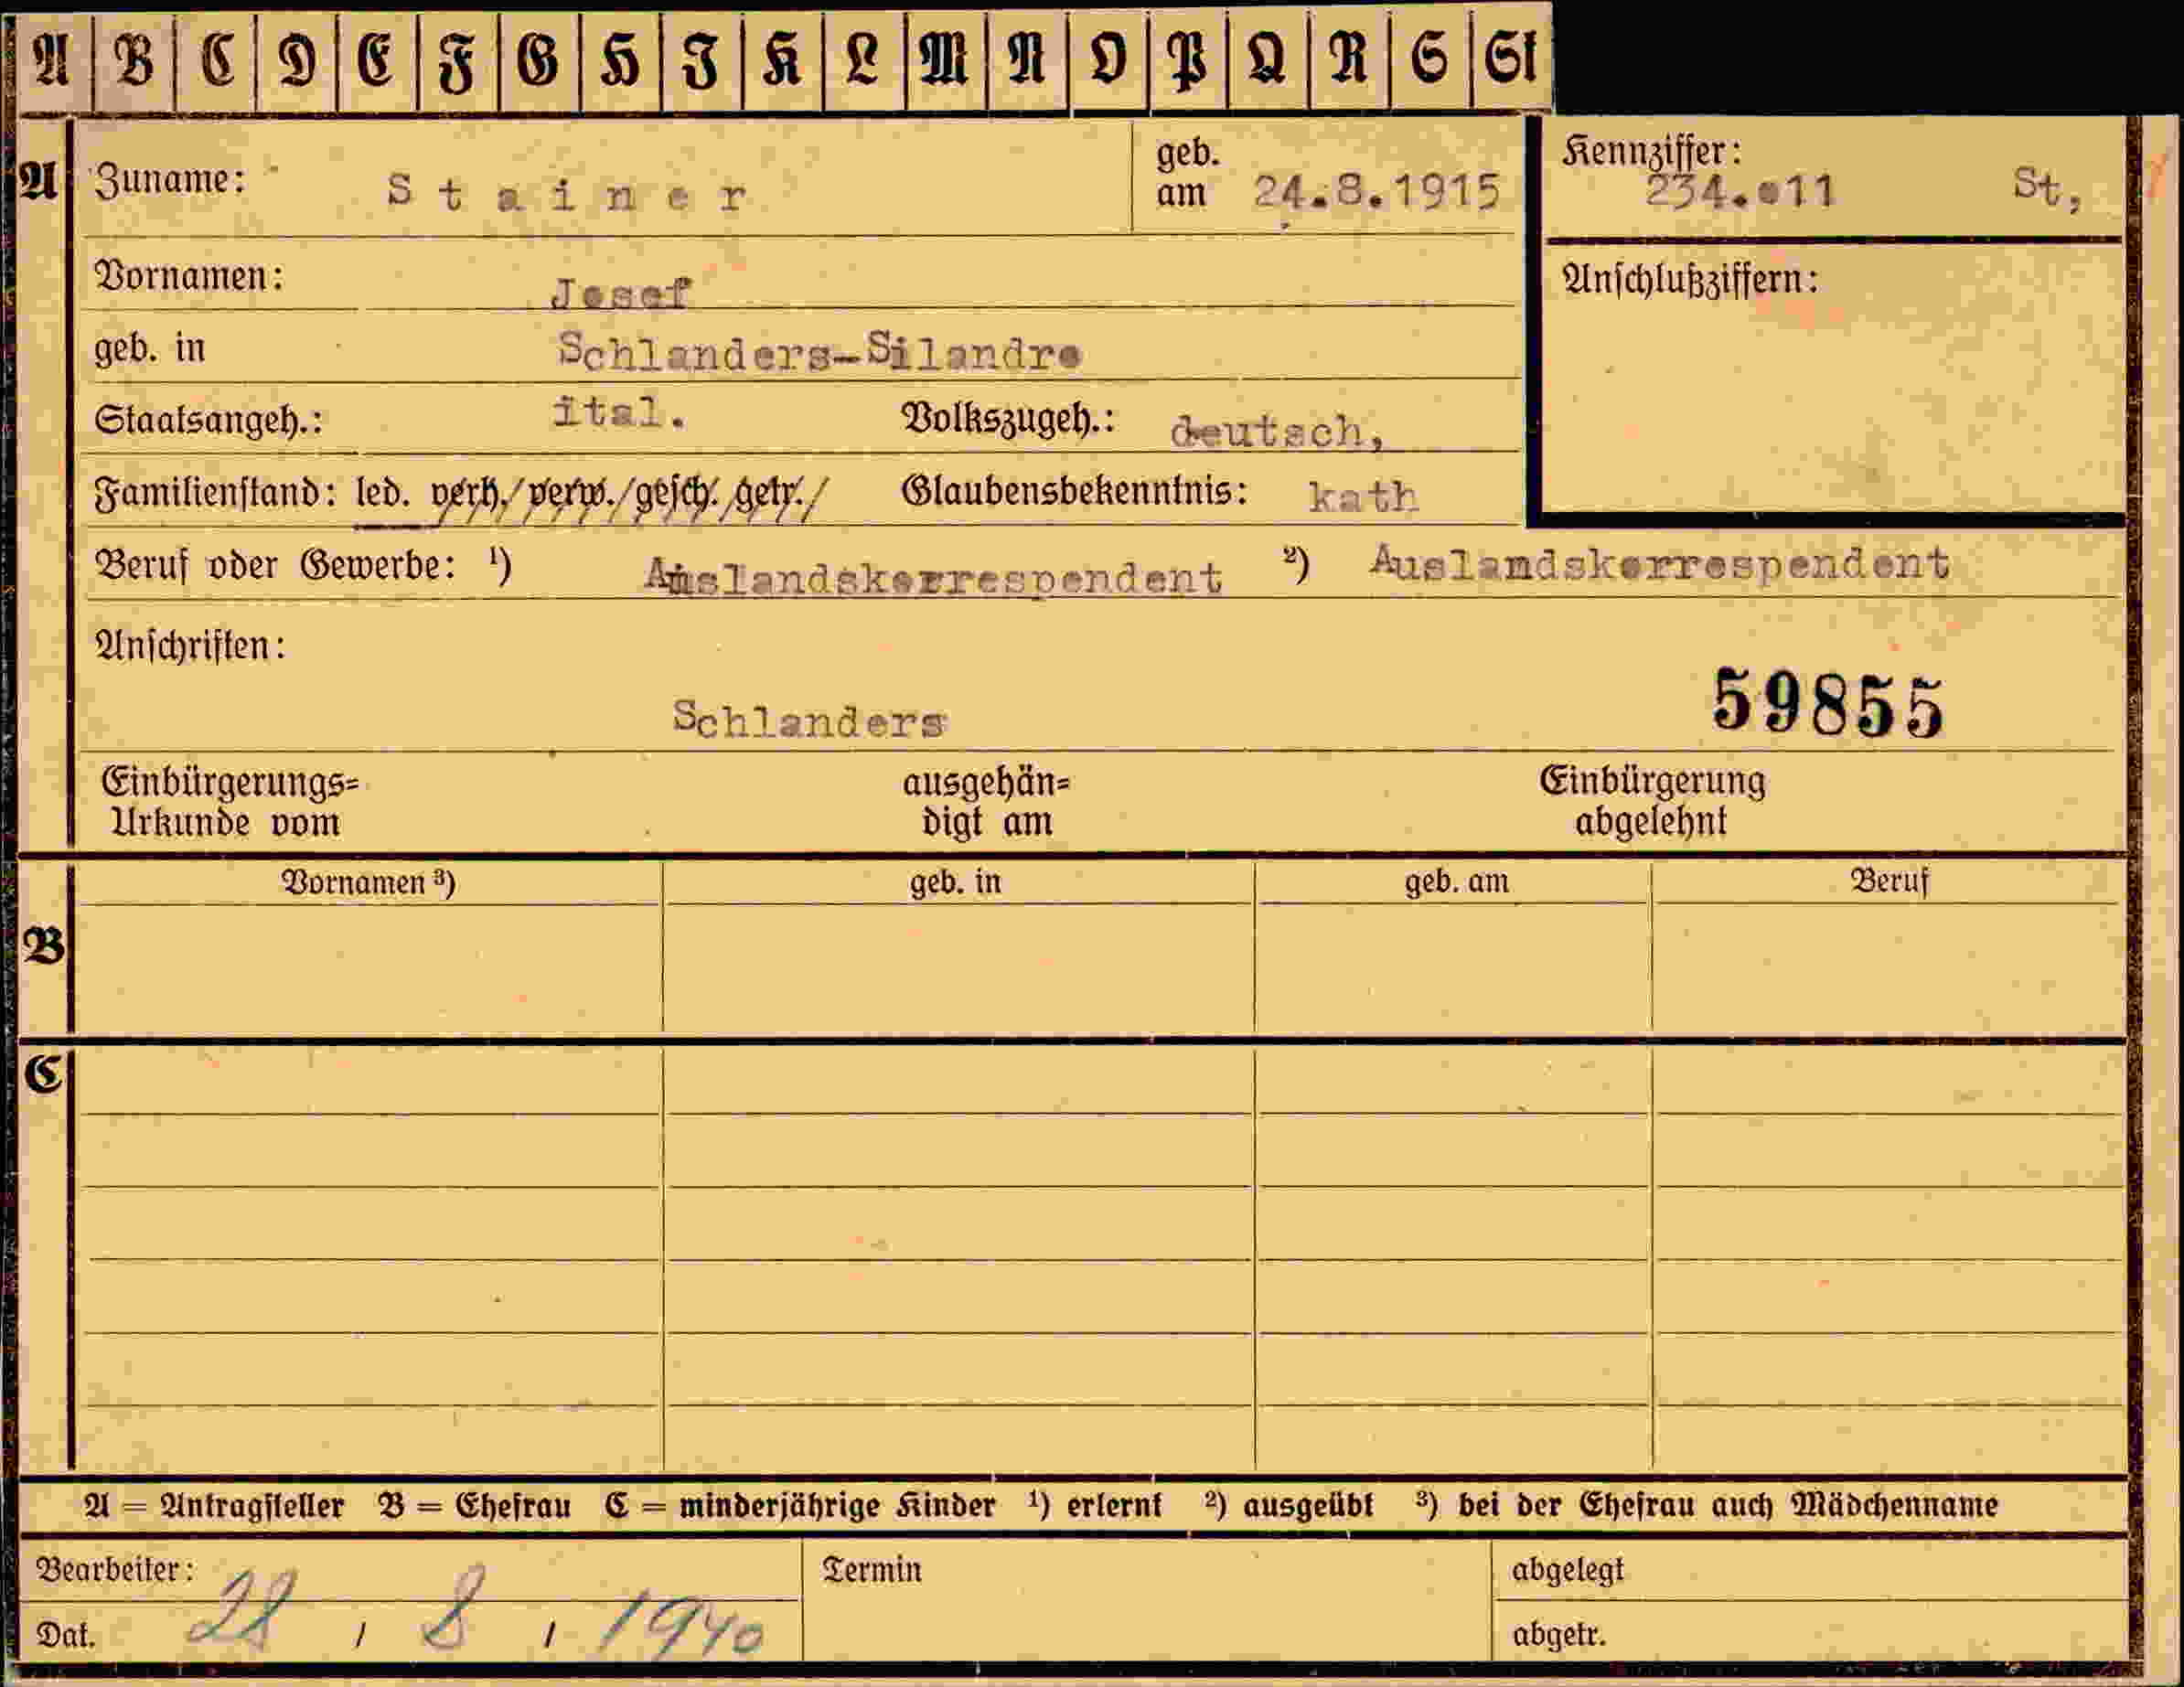 A B C D E F G H I K L M N O P Q R S St
A Zuname: Stainer geb. am 24.8.1915 Kennziffer: 234.011 St,
Vornamen: Josef Anschlußziffern:
geb. in Schlanders-Silandro
Staatsangeh.: ital. Volkszugeh.: deutsch,
Familienstand: led. verh./verw./gesch./getr./ Glaubensbekenntnis: kath
Beruf oder Gewerbe: ¹) Auslandskorrespondent ²) Auslandskorrespondent
Anschriften:
Schlanders 59855
Einbürgerungs= ausgehän= Einbürgerung
Urkunde vom digt am abgelehnt
Vornamen ³) geb. in geb. am Beruf
B
C
A = Antragsteller B = Ehefrau C = minderjährige Kinder ¹) erlernt ²) ausgeübt ³) bei der Ehefrau auch Mädchenname
Bearbeiter: Termin abgelegt
Dat. 28 / 8 / 1940 abgetr.